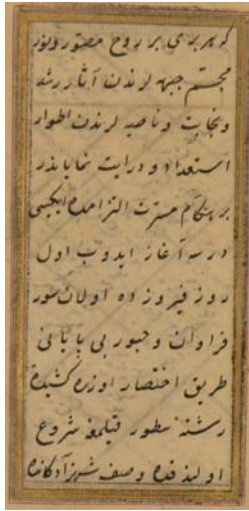 كه هر بری بر روح مصور و نور
مجسم جبهه لرندن آثار رشد
و نجابت و ناصیه لرندن اطوار
استعداد و درایت نمایاندر
بر هنكام مسرت التزامده ایكیسی
درسه آغاز ایدوب اول
روز فیروزده اولان سور
فراوان و حبور بی پایانی
طریق اختصار اوزره كشیدهٔ
رشتهٔ سطور قیلمغه شروع
اولندقده وصف شهزادكانده